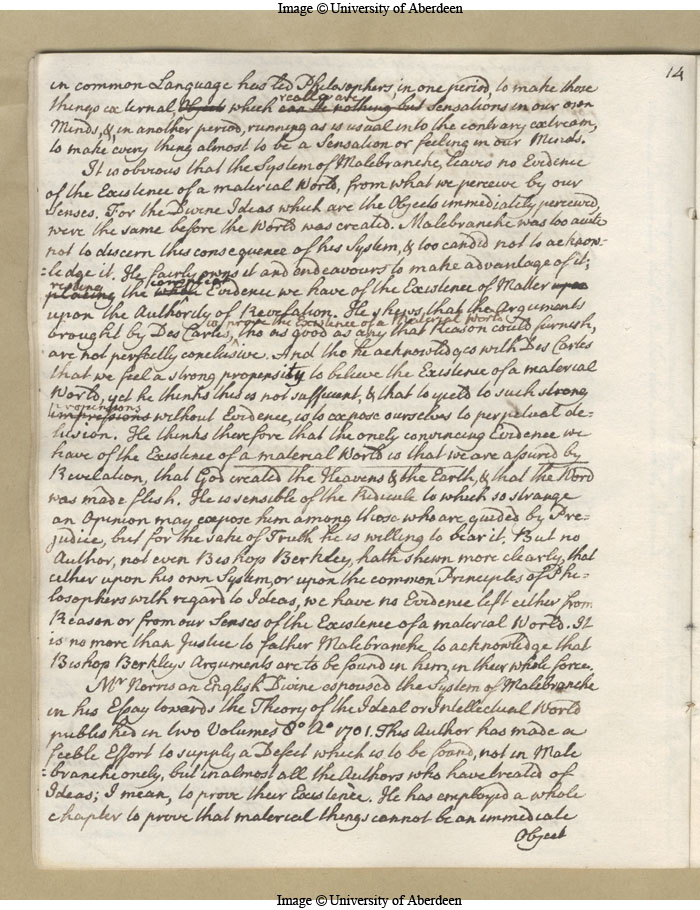 Image © University of Aberdeen
14
in common Language has led Philosophers in one period, to make those
things external Object which really are can be nothing but Sensations in our own
Minds, & in another period, running as is usual into the contrary extream,
to make every thing almost to be a Sensation or feeling in our Minds.
It is obvious that the System of Malebranche, leaves no Evidence
of the Existence of a material World, from what we perceive by our
Senses. For the Divine Ideas which are the Objects immediately perceived,
were the same before the World was created. Malebranche was too acute
not to discern this consequence of his System, & too candid not to acknow-
:ledge it. He fairly owns it and endeavours to make advantage of it;
resting placing the whole Evidence we have of the Existence of Matter upon
upon the Authority of Revelation. He shews, that the Arguments
brought by Des Cartes, to prove the Existence of a Material World tho as good as any that Reason could furnish,
are not perfectly conclusive. And tho he acknowledges with Des Cartes
that we feel a strong propensity to believe the Existence of a material
World, yet he thinks this is not sufficient, & that to yield to such strong
propensions impressions without Evidence, is to expose ourselves to perpetual de-
lusion. He thinks therefore that the onely convincing Evidence we
have of the Existence of a material World is that we are assured by
Revelation, that God created the Heavens & the Earth, & that the Word
was made flesh. He is sensible of the Ridicule to which so strange
an Opinion may expose him among those who are guided by Pre=
judice, but for the sake of Truth he is willing to bear it. But no
Author, not even Bishop Berkley, hath shewn more clearly, that
either upon his own System, or upon the common Principles of Phi=
losophers with regard to Ideas, we have no Evidence left either from
Reason or from our Senses of the Existence of a material World. It
is no more than Justice to father Malebranche to acknowledge that
Bishop Berkleys Arguments are to be found in him, in their whole force.
Mr Norris an English Divine espoused the System of Malebranche
in his Essay towards the Theory of the Ideal or Intellectual World
published in two Volumes 8o Ao 1701. This Author has made a
feeble Effort to supply a Defect which is to be found, not in Male
:branche onely, but in almost all the Authors who have treated of
Ideas; I mean, to prove their Existence. He has employed a whole
chapter to prove that material things cannot be an immediate
Object
Image © University of Aberdeen